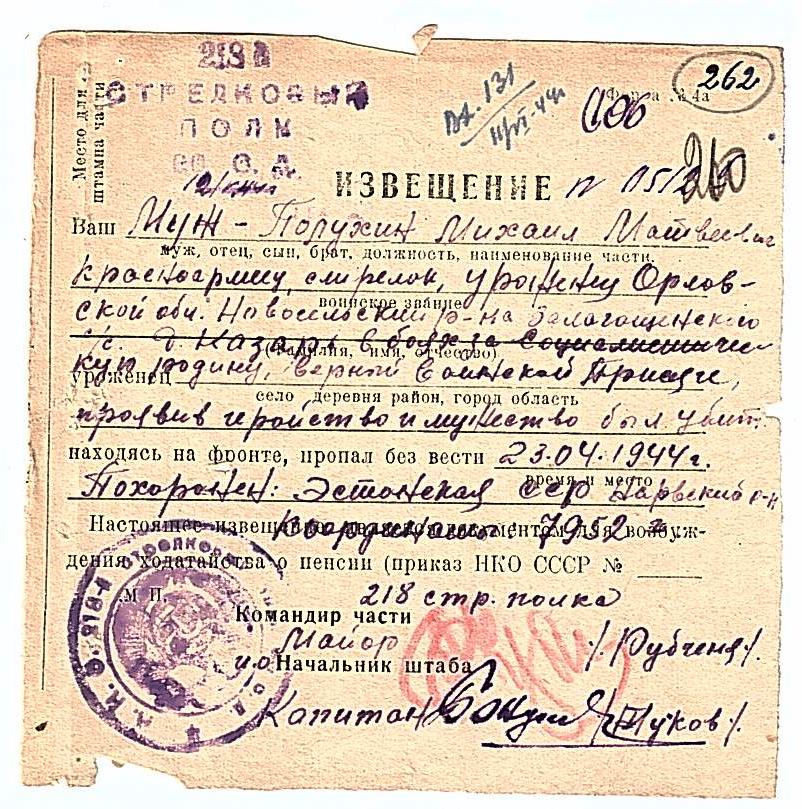 218 й
СТРЕЛКОВЫЙ
ПОЛК
Место для
штампа части
Вх. 131
262
Форма № 4а
ИЗВЕЩЕНИЕ N
Ваш Муж - Полухин Михаил Матвеевич
муж, отец, сын, брат, должность, наименование части.
красноармиец, стрелок, уроженец Орлов-
воинское звание
ской обл. Новосильский р-на Залагощенского
(фамилия, имя, отчество)
с/с. д. Казарь в боях за Социалистичес
кую родину, верный воинской присяге,
уроженец
село деревня район, город область
проявив геройство и мужество был убит
находясь на фронте, пропал без вести 23.04.1944г.
время и место
Похоронен: Эстонская ССР Нарвский р-н
Настоящее извещение является документом для возбуж-
Координаты: 7952
дения ходатайства о пенсии (приказ НКО СССР №
М П.
218 стр. полка
Командир части
Майор /Рубченя/.
и.о Начальник штаба
Капитан /Жуков/.